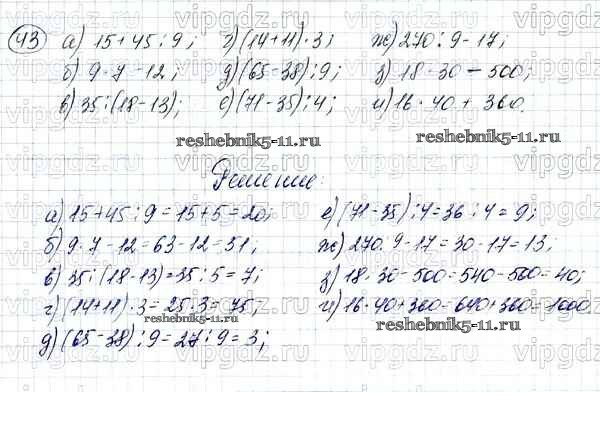 43 а) 15+45:9; г) (14+11)·3; ж) 270:9-17;
б) 9·7-12; д) (65-38):9; з) 18·30-500;
в) 35:(18-13); е) (71-35):4; и) 16·40+360.
reshebnik5-11.ru reshebnik5-11.ru
Решение:
а) 15+45:9=15+5=20; е) (71-35):4=36:4=9;
б) 9·7-12=63-12=51; ж) 270:9-17=30-17=13;
в) 35:(18-13)=35:5=7; з) 18·30-500=540-500=40;
г) (14+11)·3=25·3=75; и) 16·40+360=640+360=1000
reshebnik5-11.ru reshebnik5-11.ru
д) (65-38):9=27:9=3;
vipgdz.ru vipgdz.ru vipgdz.ru vipgdz.ru